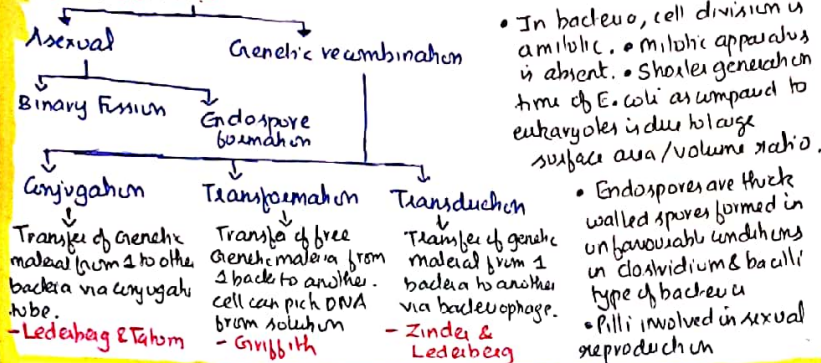 Asexual
Genetic recombination
Binary Fission
Endospore
formation
Conjugation
Transfer of Genetic
material from 1 to other
bacteria via conjugati
tube.
- Lederberg & Tatum
Transformation
Transfer of free
Genetic material from
1 back to another.
cell can pick DNA
from solution
- Griffith
Transduction
Transfer of genetic
material from 1
bacteria to another
via bacteriophage.
- Zinder &
Lederberg
• In bacteria, cell division is
amitotic. • mitotic apparatus
is absent. • Shorter generation
time of E. coli as compared to
eukaryotes is due to large
surface area/volume ratio.
• Endospores are thick
walled spores formed in
unfavourable conditions
in clostridium & bacilli
type of bacteria
• Pilli involved in sexual
reproduction